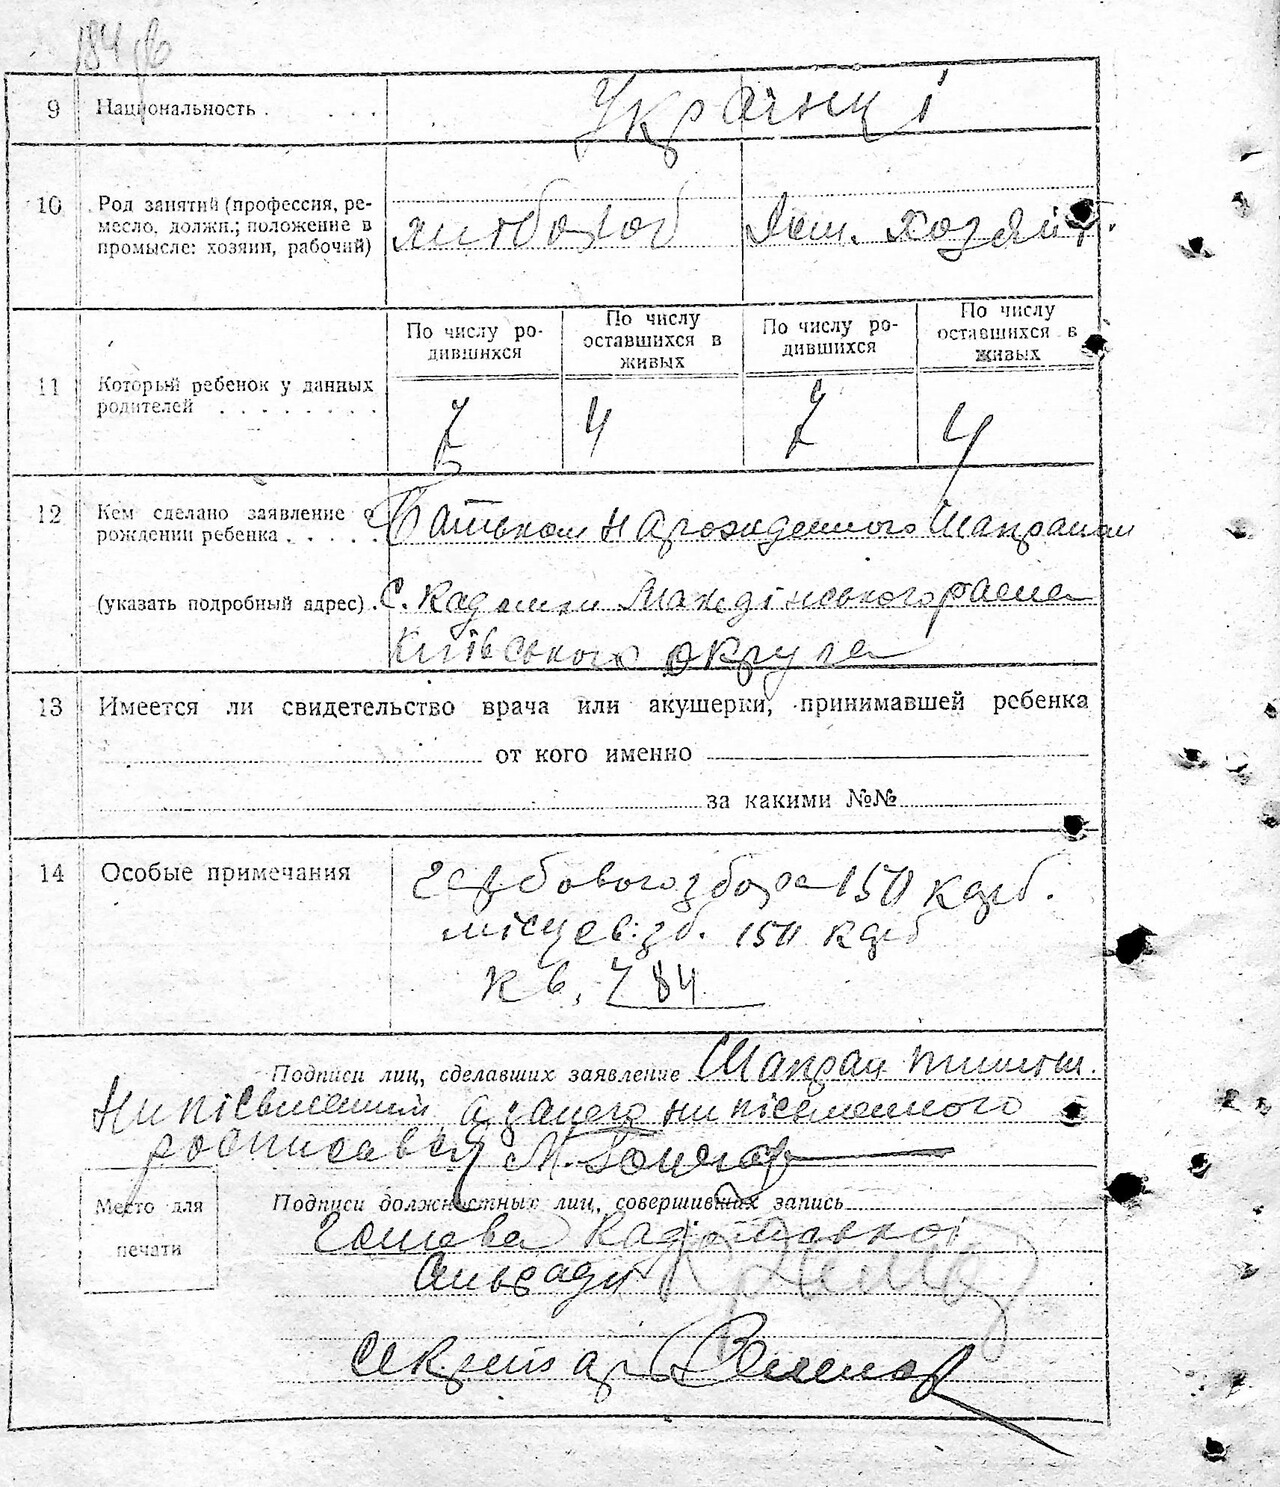 184
9 Национальность . . . . . Українці
10 Род занятий (профессия, ре-
месло, должн.; положение в
промысле: хозяин, рабочий)
хлібороб Дом. хозяйс.
11 Который ребенок у данных
родителей . . . . . . . .
По числу ро-
дившихся
По числу
оставшихся в
живых
По числу ро-
дившихся
По числу
оставшихся в
живых
7 4 7 4
12 Кем сделано заявление о
рождении ребенка . . . . . Батьком народженного Шапраном
(указать подробный адрес) . С.
Київського округа
13 Имеется ли свидетельство врача или акушерки, принимавшей ребенка
от кого именно
за какими №№
14 Особые примечания
гербового збора 150 карб.
місцев. зб. 150 карб
кв. 784
Подписи лиц, сделавших заявление Шапран
неписьменного
росписався М.
Место для
печати
Подписи должностных лиц, совершивших запись
Голова
Сильради
Секретар